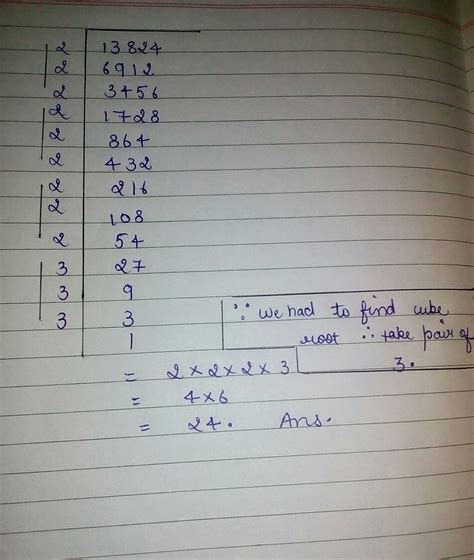 2 13824
2 6912
2 3456
2 1728
2 864
2 432
2 216
2 108
2 54
3 27
3 9
3 3
1
∵ we had to find cube
root ∴ take pair of
3.
= 2×2×2×3
= 4×6
= 24. Ans.